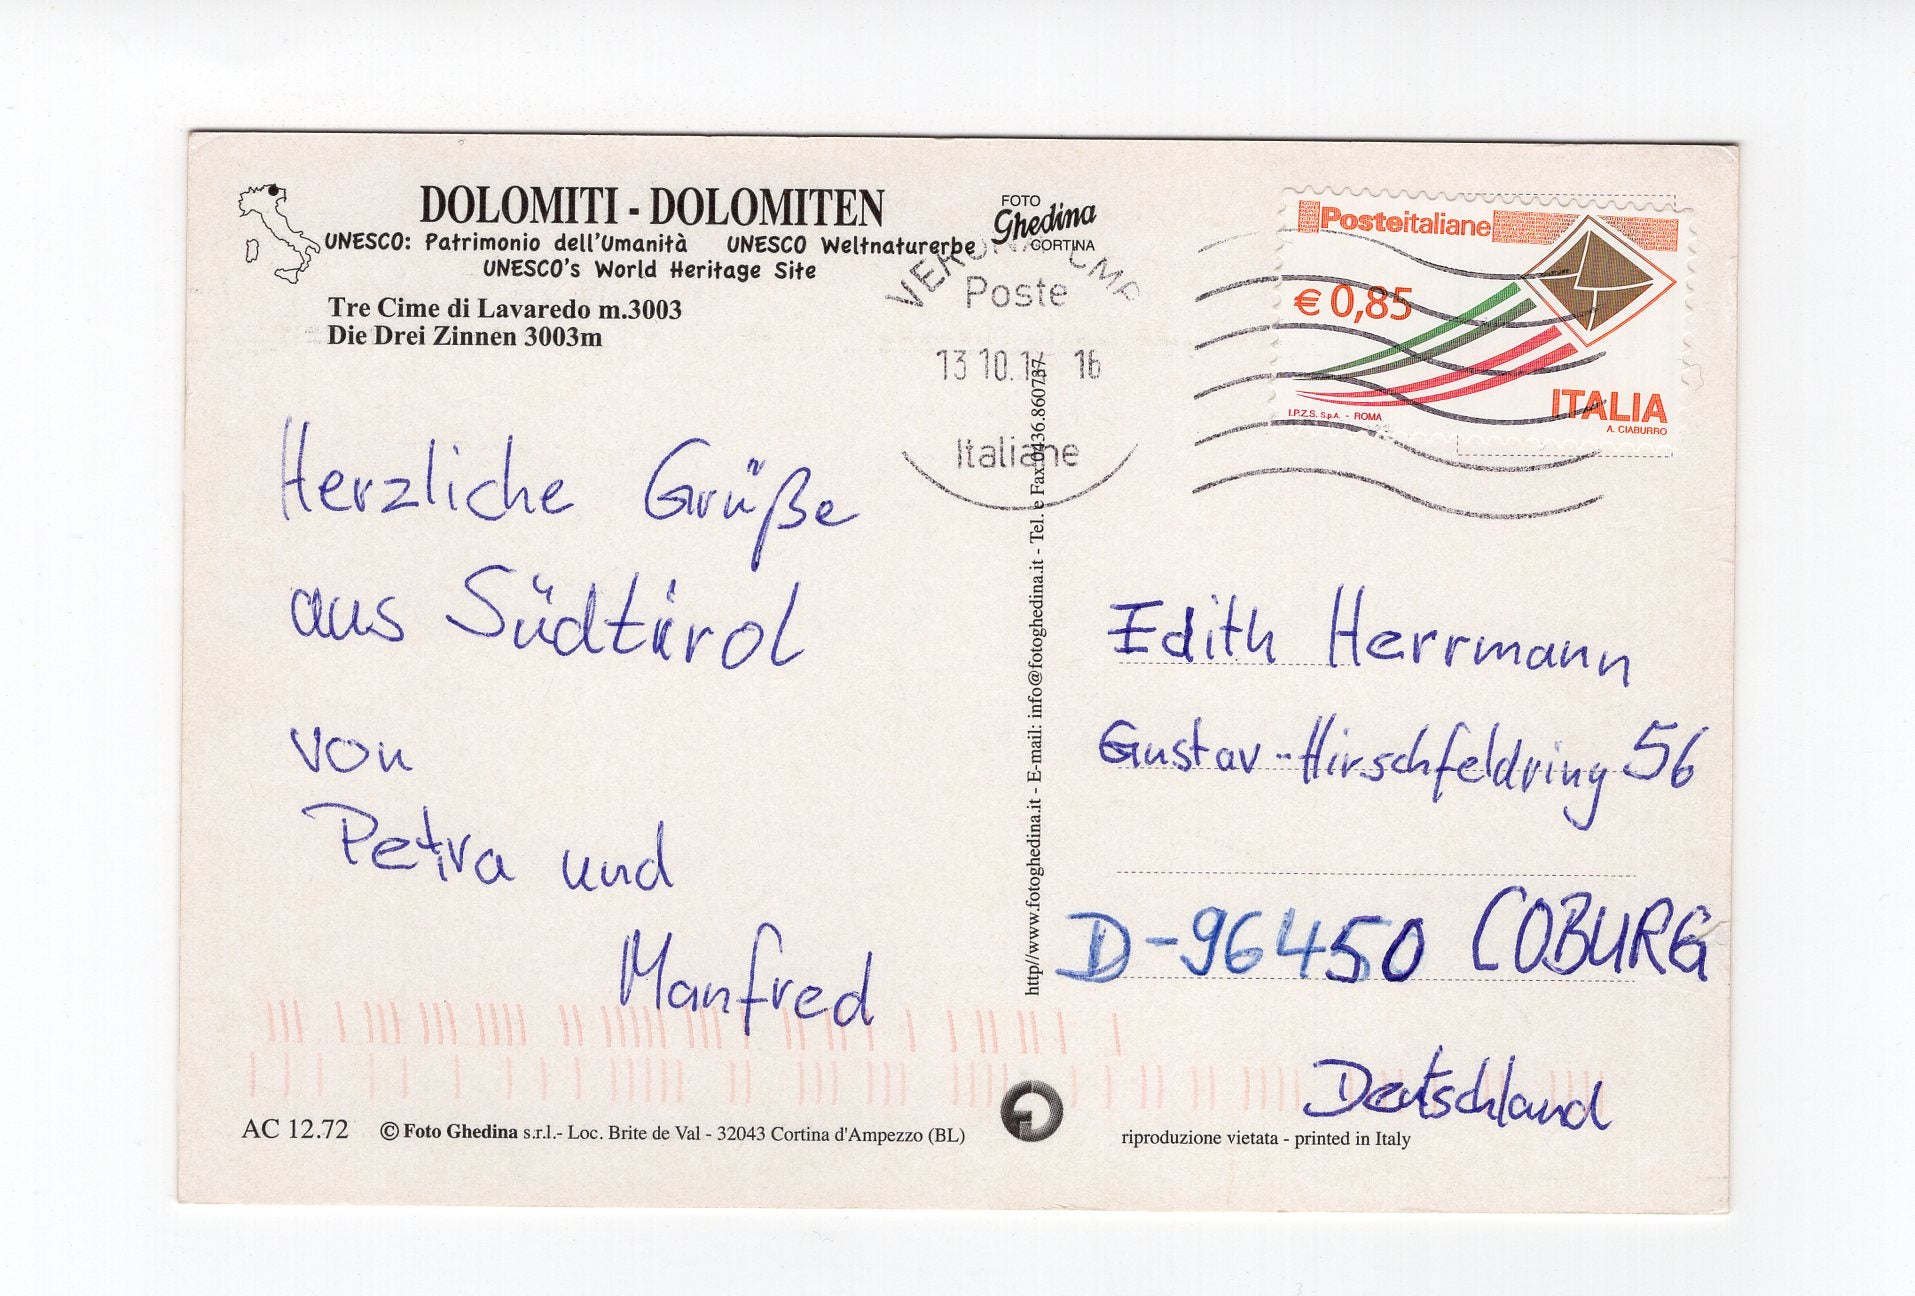 DOLOMITI - DOLOMITEN
UNESCO: Patrimonio dell'Umanità UNESCO Weltnaturerbe
UNESCO's World Heritage Site
Tre Cime di Lavaredo m.3003
Die Drei Zinnen 3003m
FOTO
Ghedina
CORTINA
VERONA CMP
Poste
13 10.14 16
Italiane
Posteitaliane
€ 0,85
I.P.Z.S. S.p.A. - ROMA
ITALIA
A. CIABURRO
Herzliche Grüße
aus Südtirol
von
Petra und
Manfred
http//www.fotoghedina.it - E-mail: info@fotoghedina.it - Tel. e Fax 0436.860737
Edith Herrmann
Gustav-Hirschfeldring 56
D-96450 COBURG
Deutschland
AC 12.72 © Foto Ghedina s.r.l.- Loc. Brite de Val - 32043 Cortina d'Ampezzo (BL)
riproduzione vietata - printed in Italy